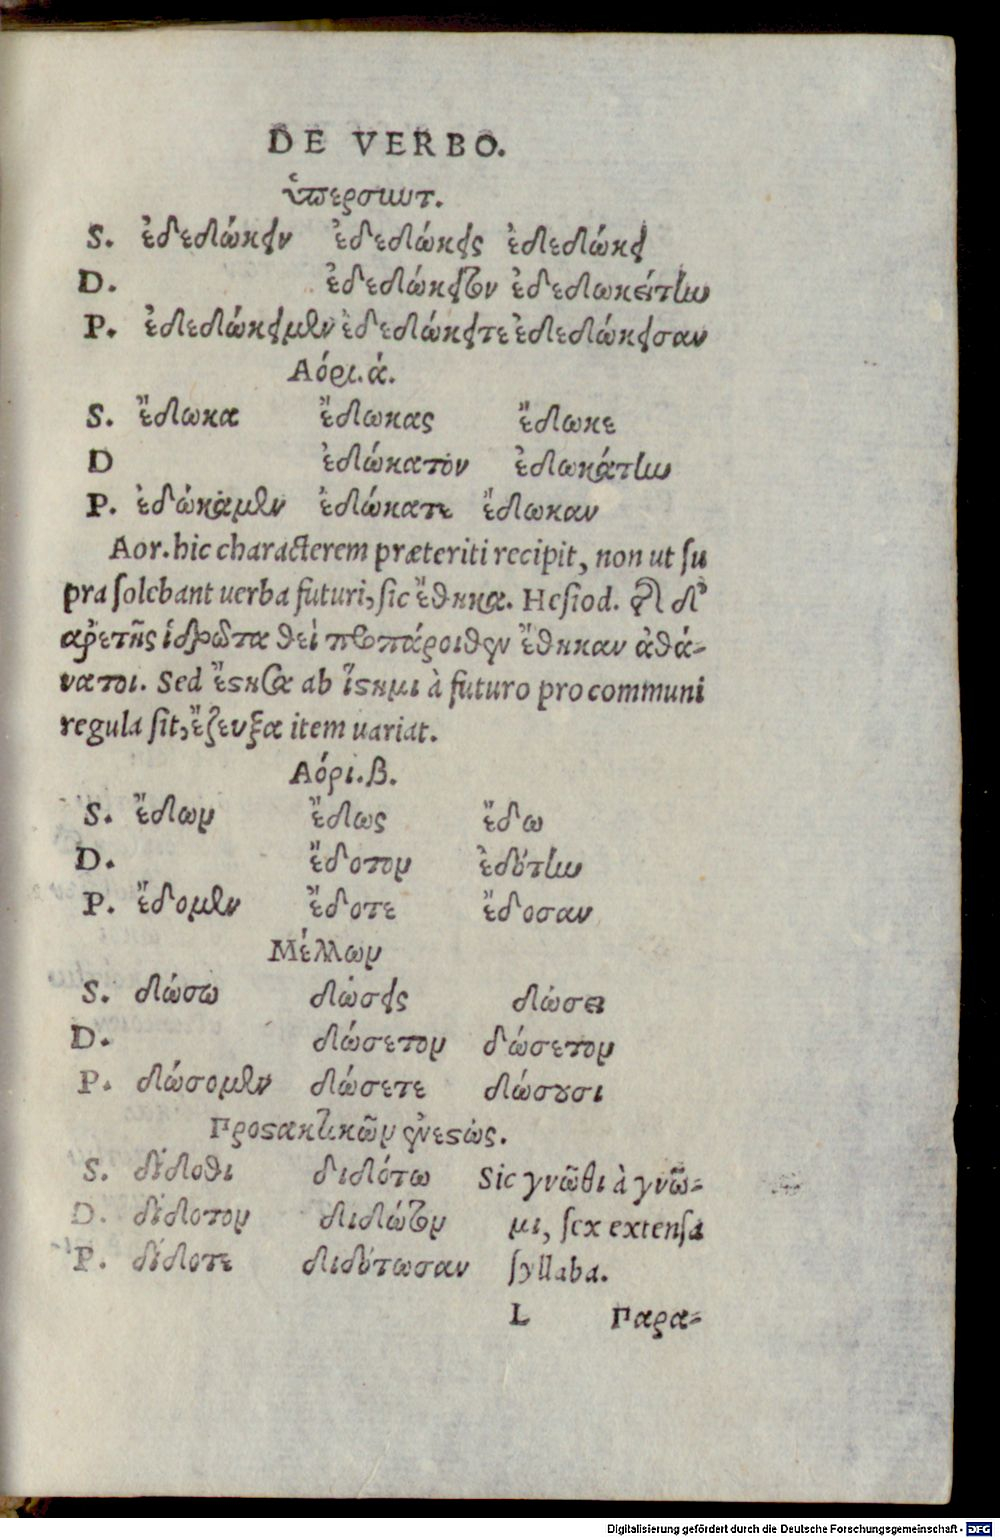 DE VERBO.
ὑπερσιωτ.
S. ἐδεδώκειν ἐδεδώκεις ἐδεδώκει
D. ἐδεδώκειτον ἐδεδωκείτην
P. ἐδεδώκειμεν ἐδεδώκειτε ἐδεδώκεισαν
Αόρι.ά.
S. ἔδωκα ἔδωκας ἔδωκε
D ἐδώκατον ἐδωκάτην
P. ἐδώκαμεν ἐδώκατε ἔδωκαν
Aor. hic characterem præteriti recipit, non ut ſu
pra ſolebant uerba futuri, ſic ἔθηκα. Heſiod. τῆ δ'
ἀρετῆς ἱδρῶτα θεὶ προπάροιθεν ἔθηκαν ἀθά-
νατοι. Sed ἔςησα ab ἵςημι à futuro pro communi
regula ſit, ἔζευξα item uariat.
Αόρι.β.
S. ἔδων ἔδως ἔδω
D. ἔδοτον ἐδότην
P. ἔδομεν ἔδοτε ἔδοσαν
Μέλλων
S. δώσω δώσεις δώσει
D. δώσετον δώσετον
P. δώσομεν δώσετε δώσουσι
Προςακτικῶν ἐνεςώς.
S. δίδοθι διδότω Sic γνῶθι à γνῶ-
D. δίδοτον διδώτον μι, ſex extenſa
P. δίδοτε διδότωσαν ſyllaba.
L Παρα-
Digitalisierung gefördert durch die Deutsche Forschungsgemeinschaft - DFG